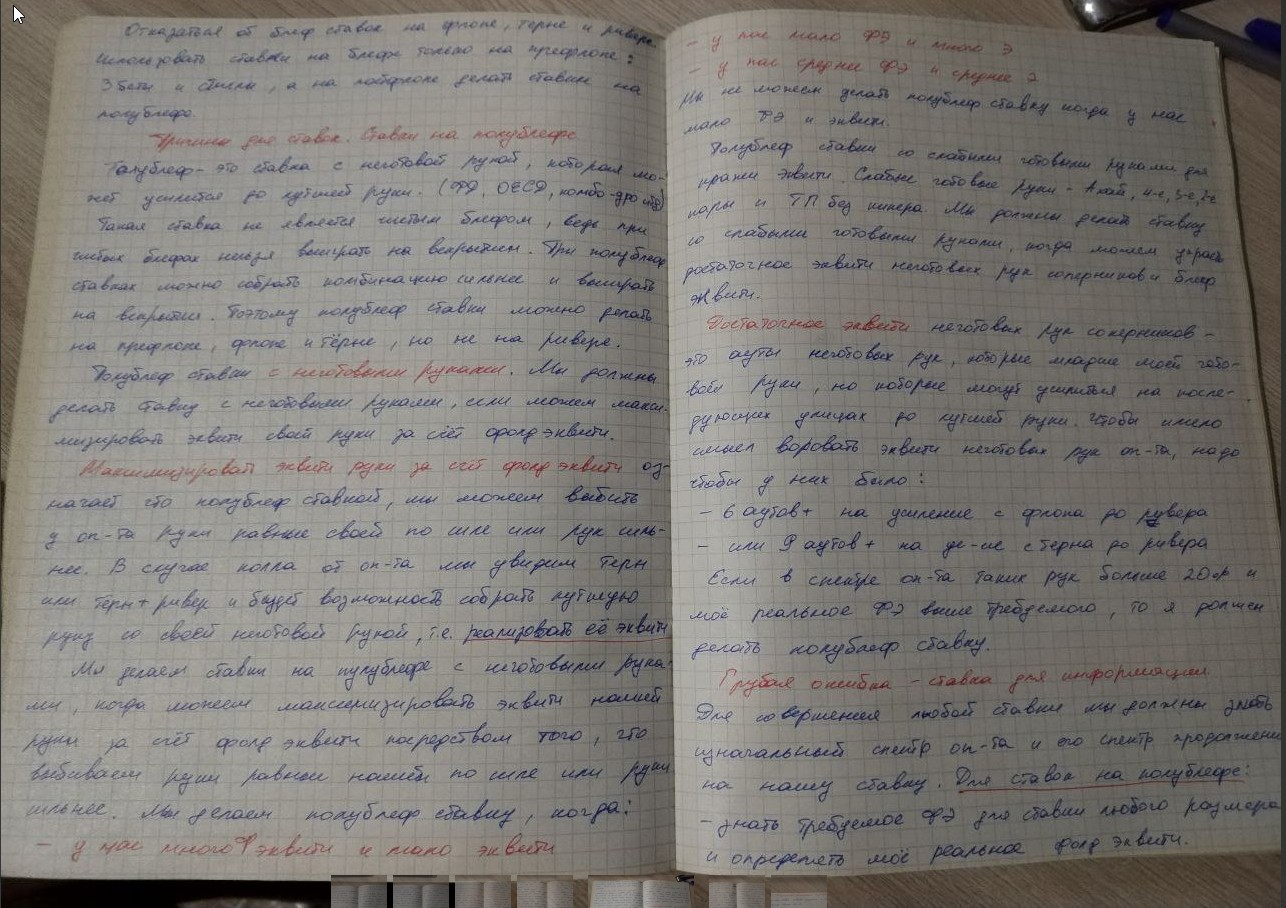 Отказаться от блеф ставок на флопе, терне и ривере.
Использовать ставки на блефе только на префлопе:
3беты и стилы, а на постфлопе делать ставки на
полублефе.
Причины для ставок. Ставки на полублефе.
Полублеф - это ставка с неготовой рукой, которая мо-
жет усилится до лучшей руки. (ФД, ОЕСД, комбо-дро итд)
Такая ставка не является чистым блефом, ведь при
чистых блефах нельзя выиграть на вскрытии. При полублеф
ставках можно собрать комбинацию сильнее и выиграть
на вскрытии. Поэтому полублеф ставки можно делать
на префлопе, флопе и тёрне, но не на ривере.
Полублеф ставки с неготовыми руками. Мы должны
делать ставку с неготовыми руками, если можем макси-
мизировать эквити своей руки за счёт фолд эквити.
Максимизировать эквити руки за счёт фолд эквити оз-
начает что полублеф ставкой, мы можем выбить
у оп-та руки равные своей по силе или рук силь-
нее. В случае колла от оп-та мы увидим терн
или терн + ривер и будет возможность собрать лучшую
руку со своей неготовой рукой, т.е. реализовать её эквити
Мы делаем ставки на пулублефе с неготовыми рука-
ми, когда можем максимизировать эквити нашей
руки за счёт фолд эквити посредством того, что
выбиваем руки равные нашей по силе или руки
сильнее. Мы делаем полублеф ставку, когда:
- у нас много Ф эквити и мало эквити
- у нас мало ФЭ и много Э
- у нас среднее ФЭ и среднее Э
Мы не можем делать полублеф ставку когда у нас
мало ФЭ и эквити.
Полублеф ставки со слабыми готовыми руками для
кражи эквити. Слабые готовые руки - Ахай, 4-е, 3-е, 2-е
пары и ТП без кикера. Мы должны делать ставку
со слабыми готовыми руками, когда можем украсть
достаточное эквити неготовых рук соперников и блеф
эквити.
Достаточное эквити неготовых рук соперников -
это ауты неготовых рук, которые младше моей гото-
вой руки, но которые могут усилиться на после-
дующих улицах до лучшей руки. Чтобы имело
смысл воровать эквити неготовых рук оп-та, надо
чтобы у них было:
- 6 аутов+ на усиление с флопа до ривера
- или 9 аутов+ на ус-ие с терна до ривера
Если в спектре оп-та таких рук больше 20% и
моё реальное ФЭ выше требуемого, то я должен
делать полублеф ставку.
Грубая ошибка - ставка для информации.
Для совершения любой ставки мы должны знать
изначальный спектр оп-та и его спектр продолжения
на нашу ставку. Для ставок на полублефе:
- знать требуемое ФЭ для ставки любого размера
и определять моё реальное фолд эквити.